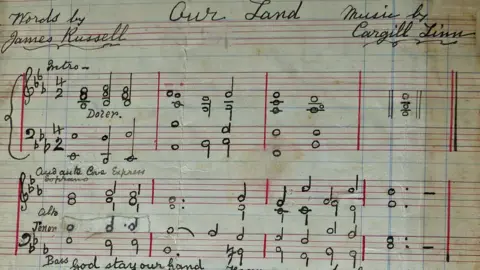 Words by
James Russell
Our Land
Music by
Cargill Linn
Intro
4
2
Andante Con Express
Soprano
Alto
Tenor
Bass God stay our hand